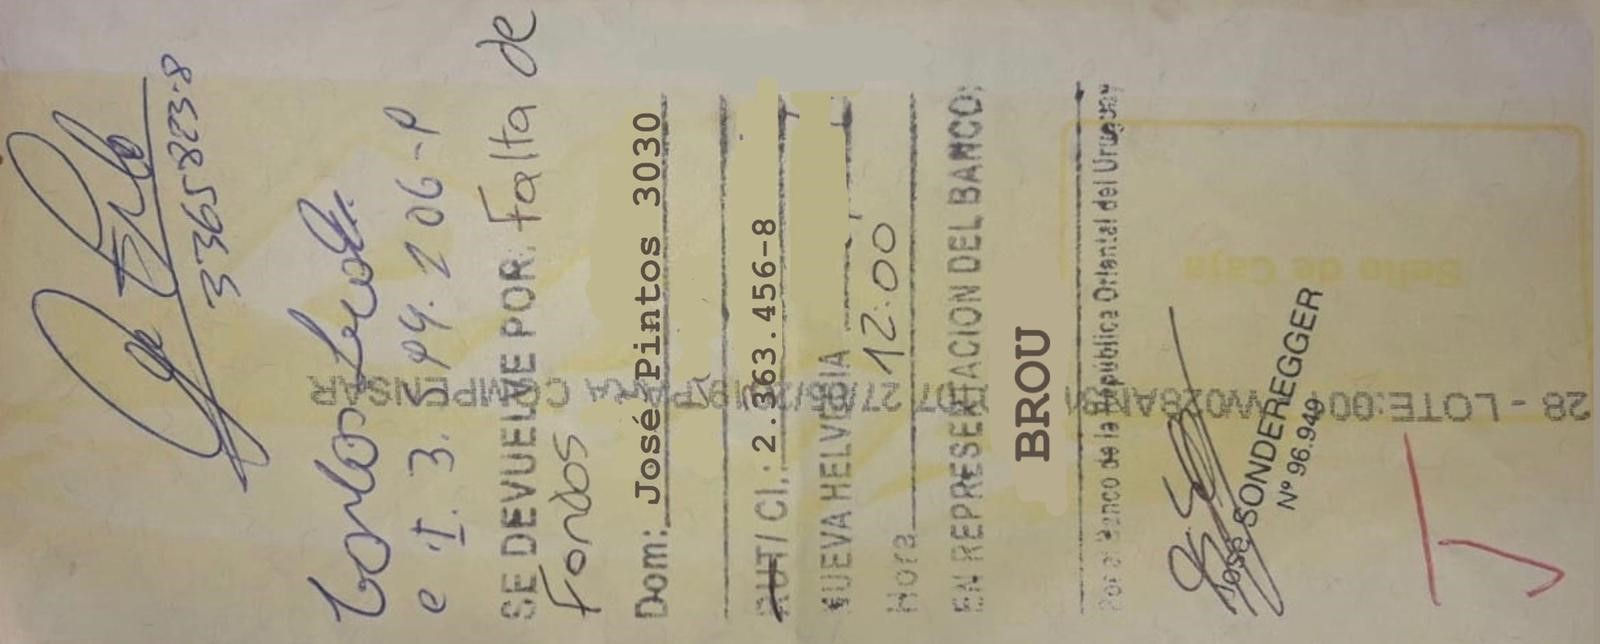 3365823-8
Carlos
SE DEVUELVE POR: Falta de
Fondos
Dom: José Pintos 3030
RUT/ CI.: 2.363.456-8
NUEVA HELVECIA
Hora 12:00
EN REPRESENTACION DEL BANCO:
BROU
Por el Banco de la República Oriental del Uruguay
JOSE SONDEREGGER
Nº 96.949
Sello de Caja
28 - LOTE:00 27/06/2018 PARA COMPENSAR